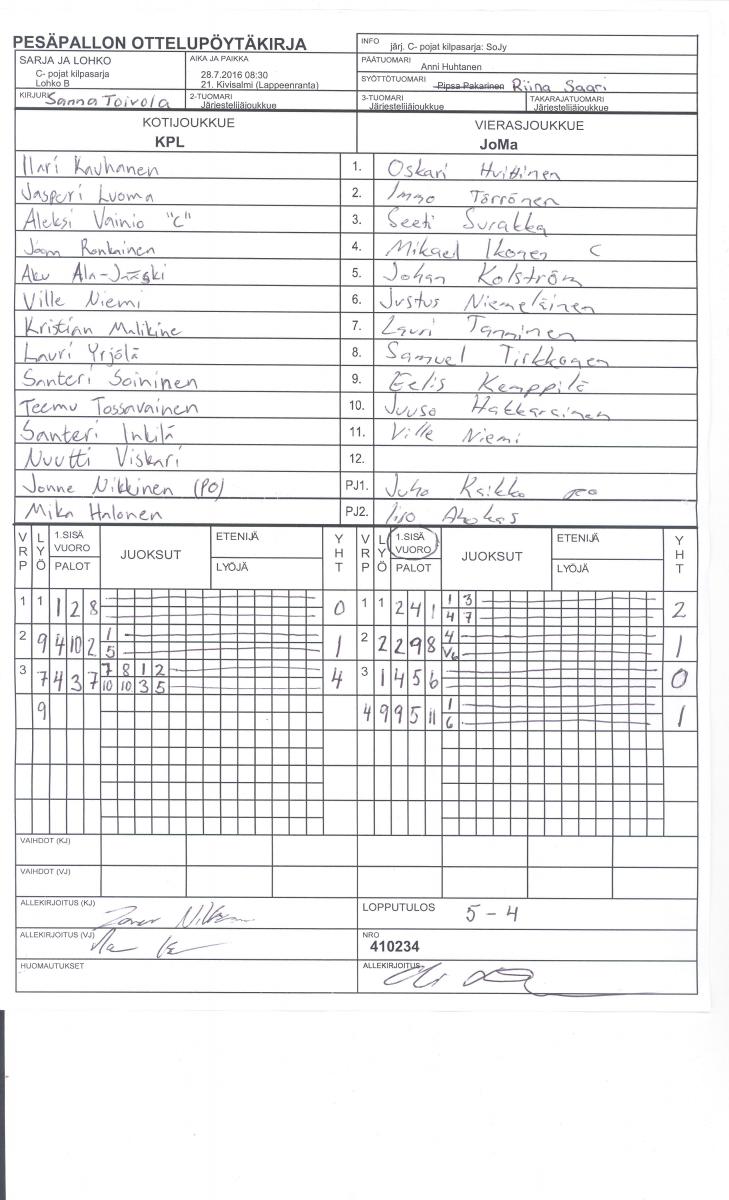 PESÄPALLON OTTELUPÖYTÄKIRJA
INFO järj. C- pojat kilpasarja: SoJy
SARJA JA LOHKO
C- pojat kilpasarja
Lohko B
AIKA JA PAIKKA
28.7.2016 08:30
21. Kivisalmi (Lappeenranta)
PÄÄTUOMARI
Anni Huhtanen
SYÖTTÖTUOMARI Pipsa Pakarinen Riina Saari
KIRJURI Sanna Toivola
2-TUOMARI
Järjestelijäjoukkue
3-TUOMARI
Järjestelijäjoukkue
TAKARAJATUOMARI
Järjestelijäjoukkue
KOTIJOUKKUE VIERASJOUKKUE
KPL JoMa
Ilari Kauhanen 1. Oskari Huittinen
Jasperi Luoma 2. Immo Törrönen
Aleksi Vainio "C" 3. Seeti Surakka
Joona Ronkainen 4. Mikael Ikonen C
Aku Ala-Jääski 5. Johan Kolström
Ville Niemi 6. Justus Niemeläinen
Kristian Malikine 7. Lauri Tanninen
Lauri Yrjölä 8. Samuel Tirkkonen
Santeri Soininen 9. Eelis Kemppilä
Teemu Tossavainen 10. Juuso Hakkarainen
Santeri Inkilä 11. Ville Niemi
Nuutti Viskari 12.
Jonne Nikkinen (PO) PJ1. Juho Kaikko
Mika Halonen PJ2. Iiso Ahokas
VRP LYÖ 1.SISÄ VUORO PALOT JUOKSUT ETENIJÄ LYÖJÄ YHT VRP LYÖ 1.SISÄ VUORO PALOT JUOKSUT ETENIJÄ LYÖJÄ YHT
1 1 1 2 8 0 1 1 2 4 1 1 3 2
4 7
2 9 4 10 2 1 1 2 2 2 9 8 4 1
5 V6
3 7 4 3 7 7 8 1 2 4 3 1 4 5 6 0
10 10 3 5
9 4 9 9 5 11 1 1
6
VAIHDOT (KJ)
VAIHDOT (VJ)
ALLEKIRJOITUS (KJ)
LOPPUTULOS 5 - 4
ALLEKIRJOITUS (VJ)
NRO
410234
HUOMAUTUKSET
ALLEKIRJOITUS